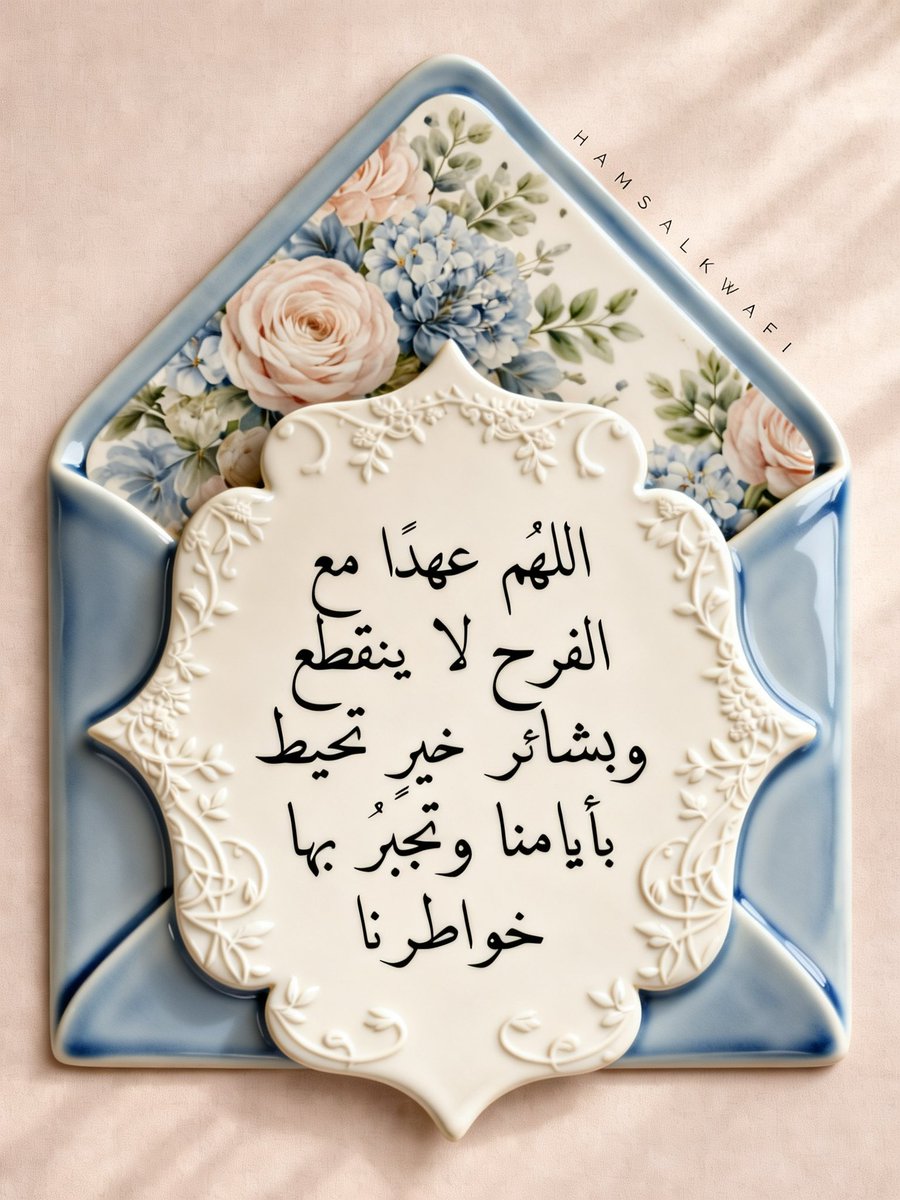 HAMSALKWAFI
اللهُم عهدًا مع
الفرح لا ينقطع
وبشائر خيرٍ تحيط
بأيامنا وتجبرُ بها
خواطرنا